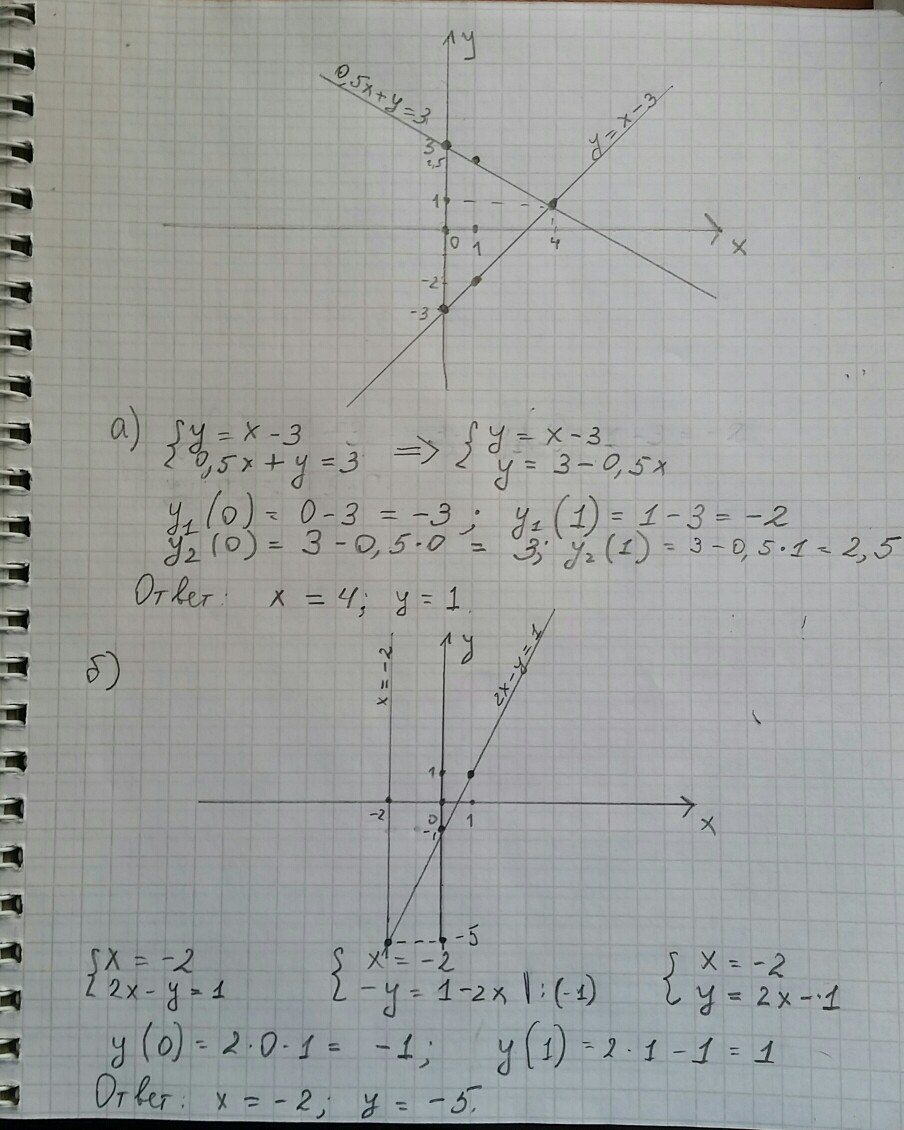 y
0,5x+y=3
y=x-3
3
2,5
1
0 1 4 x
-2
-3
а) {y = x-3 => {y = x-3
{0,5x+y=3 {y = 3-0,5x
y₁(0) = 0-3 = -3; y₁(1) = 1-3 = -2
y₂(0) = 3-0,5·0 = 3; y₂(1) = 3-0,5·1 = 2,5
Ответ: x = 4; y = 1.
б)
x=-2
y
2x-y=1
1
-2 0 1 x
-1
-5
{x = -2 {x = -2 {x = -2
{2x-y=1 {-y = 1-2x |:(-1) {y = 2x-1
y(0) = 2·0-1 = -1; y(1) = 2·1-1 = 1
Ответ: x = -2; y = -5.